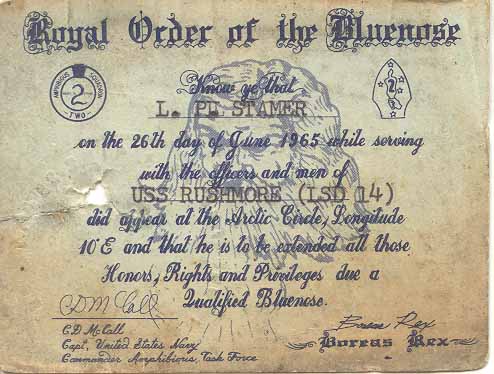 Royal Order of the Bluenose
AMPHIBIOUS SQUADRON
2
TWO
2
Know ye that
L. PL STAMER
on the 26th day of June 1965 while serving
with the officers and men of
USS RUSHMORE (LSD 14)
did appear at the Arctic Circle, Longitude
10°E and that he is to be extended all those
Honors, Rights and Privileges due a
Qualified Bluenose.
CDMcCall
C D McCall
Capt, United States Navy
Commander Amphibious Task Force
Boreas Rex
Boreas Rex